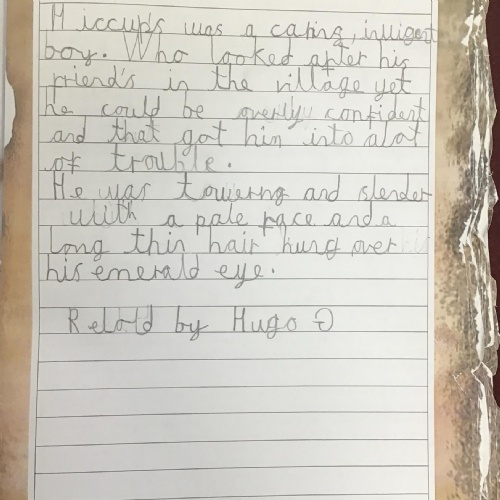 Hiccups was a caring, intligent
boy. Who looked after his
friend's in the village yet
he could be overly confident
and that got him into alot
of trouble.
He was towering and slender
with a pale face and a
long thin hair hung over his
his emerald eye.
Retold by Hugo G